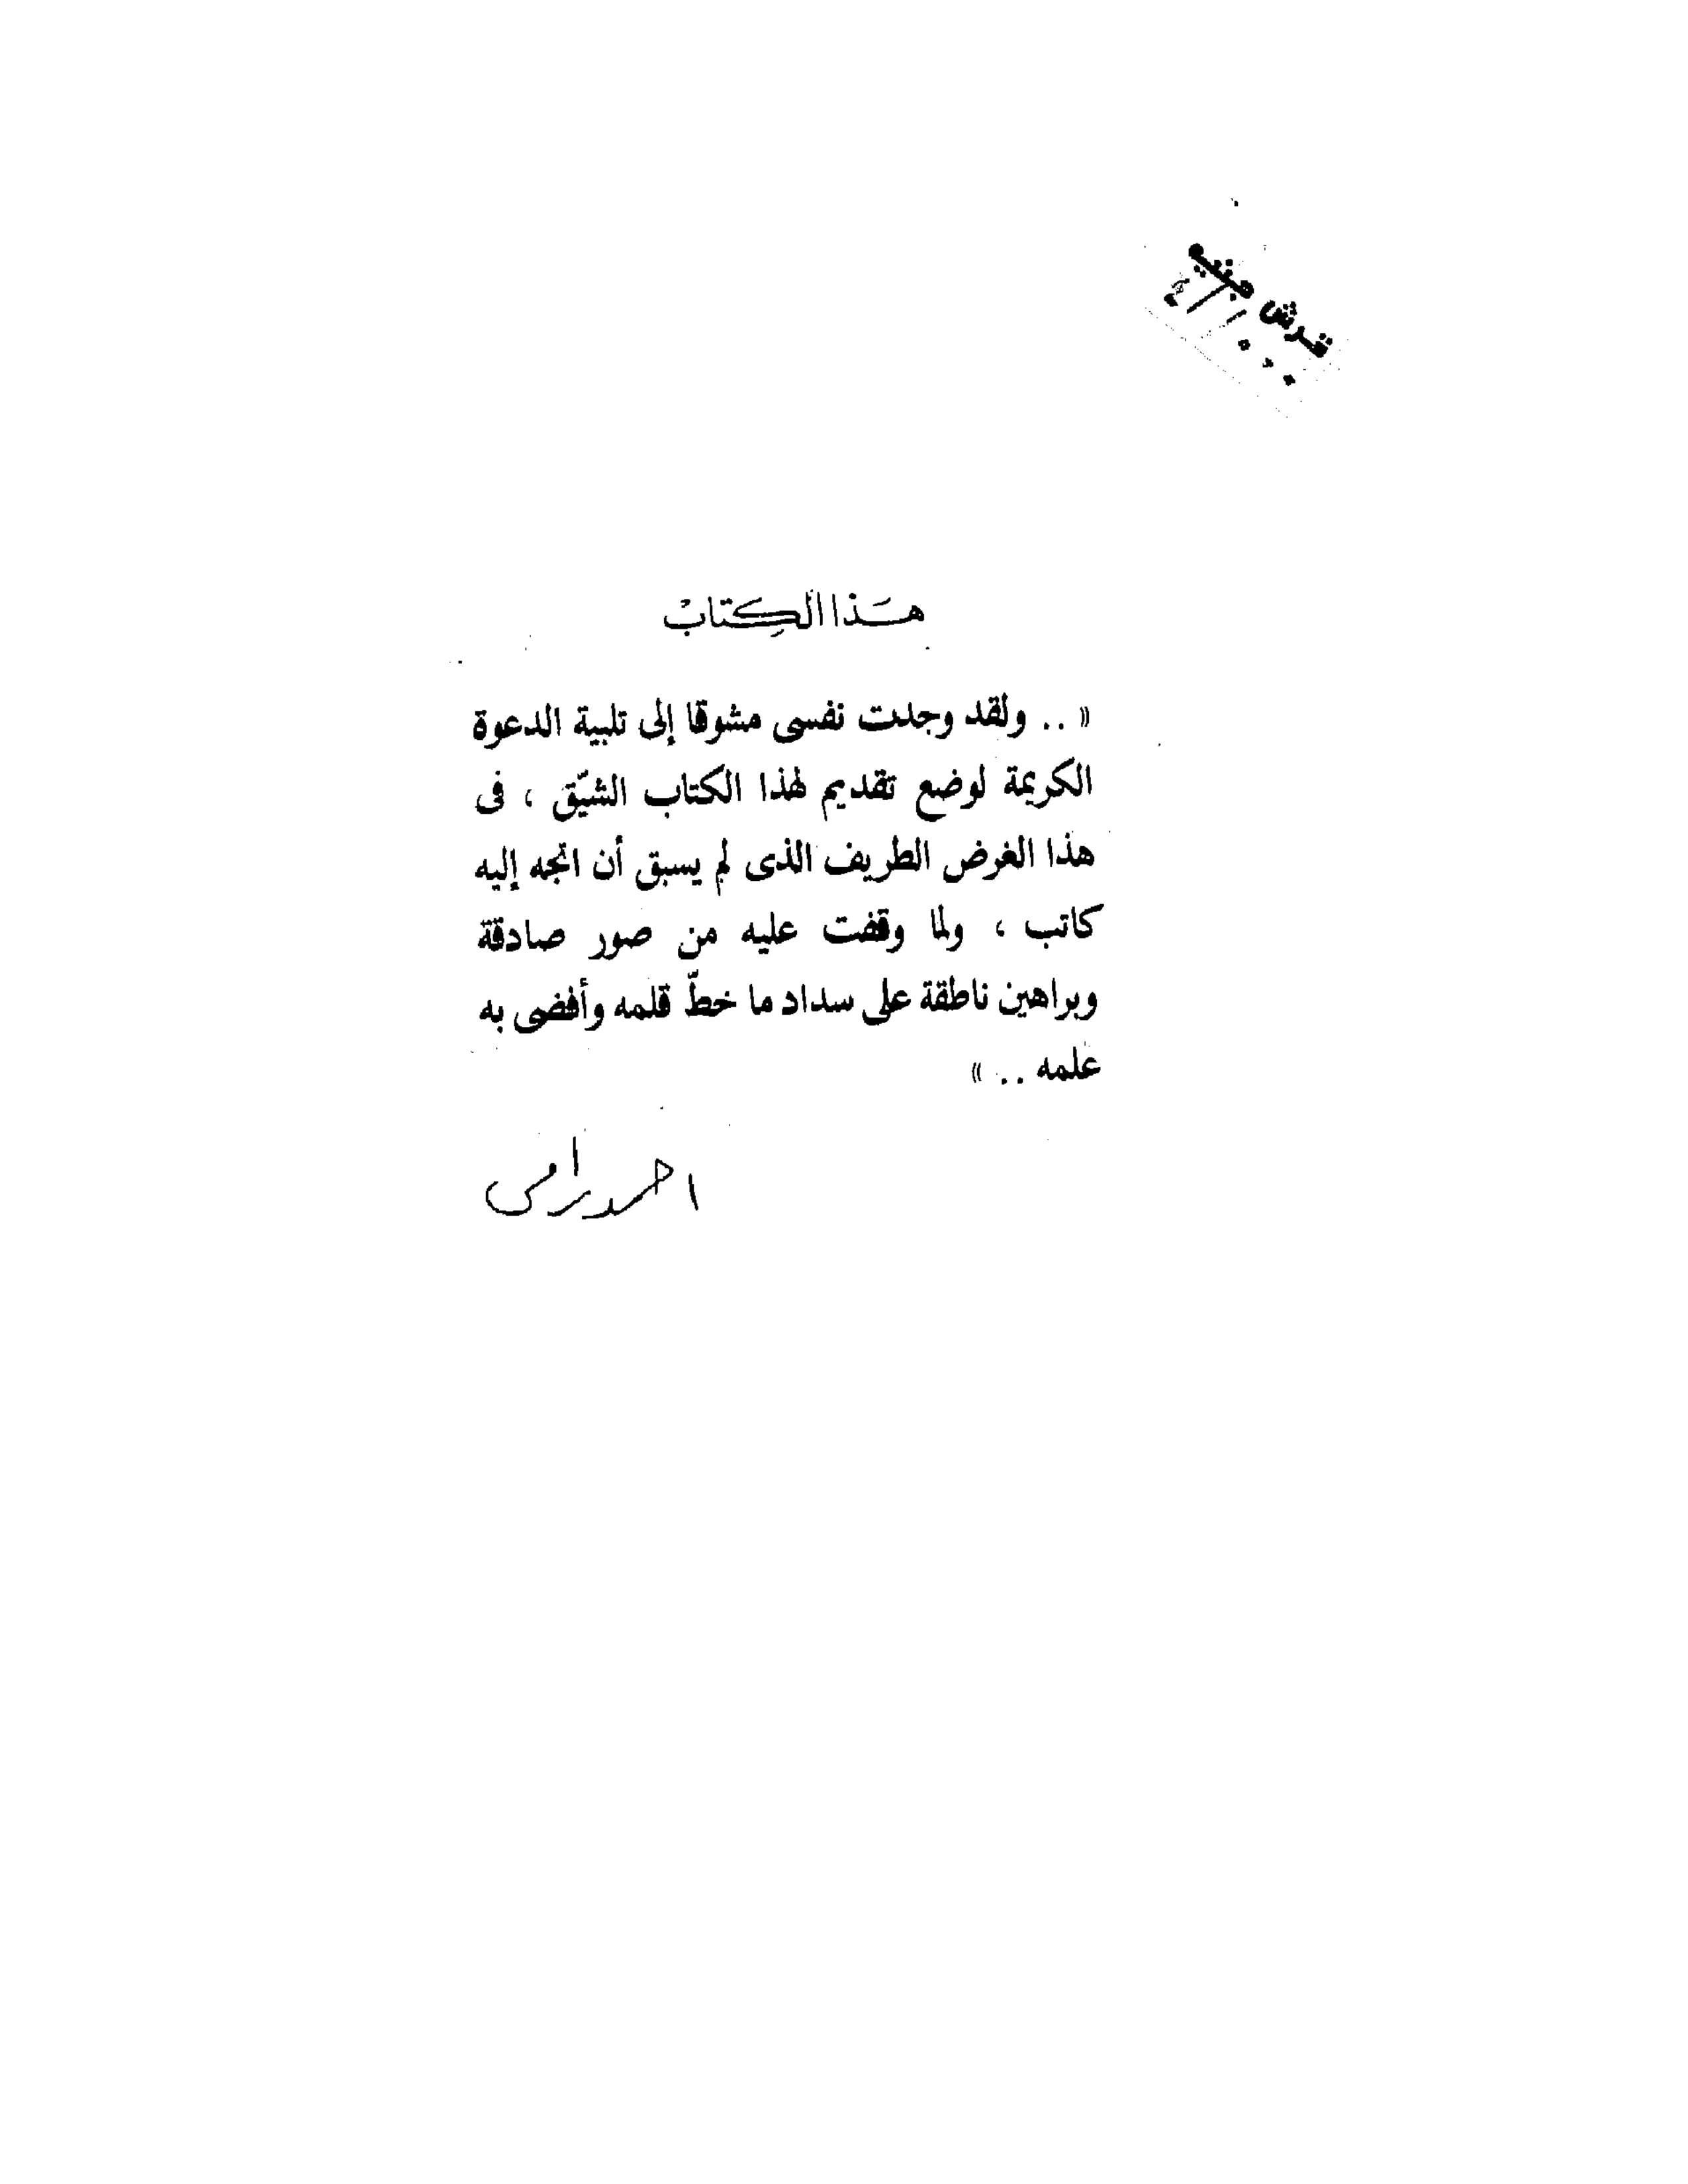 قرش جنيه
هذا الكتاب
« .. ولقد وجدت نفسى مشوقا إلى تلبية الدعوة
الكريمة لوضع تقديم لهذا الكتاب الشيّق ، فى
هذا الغرض الطريف الذى لم يسبق أن اتجه إليه
كاتب ، ولما وقفت عليه من صور صادقة
وبراهين ناطقة على سداد ما خطّ قلمه وأفضى به
علمه .. »
احمد رامى